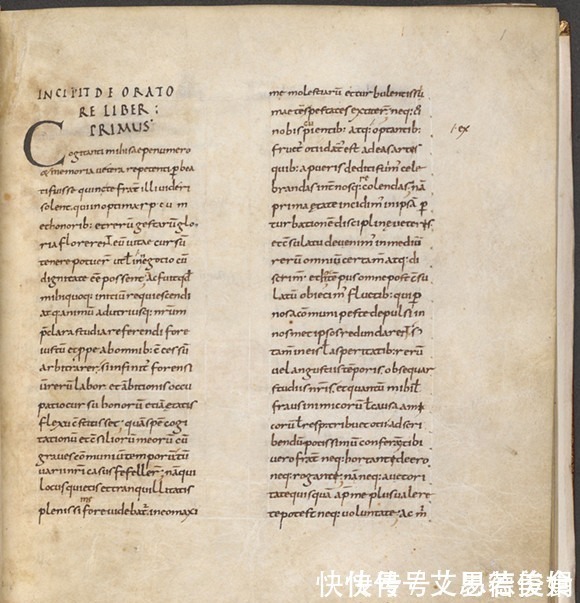 INCIPIT DE ORATO
RE LIBER
PRIMUS
Cogitanti mihi saepenumero
& memoria vetera repetenti p bea
ti fuisse quinte frat illi videri
solent qui in optima r p cum
et honorib: et rerum gestarum glo
ria florerent eum vitae cursum
tenere potuer ut l in negotio cu
dignitate ee possent ac fuit qd
mihi quoq: initium requiescendi
atq: animu ad utriusq: nrum
pclara studia referendi fore
iustu et ppe ab omnib: cessum
arbitrarer si infinit forensi
u reru labor et abitionis occu
patio cursu honorum etia etatis
flexu stitisset quaspem cogi
tationu et silioru meoru cu
graves comuniu temporu tu
varii nri casus fefeller na qui
locus quietis et tranquillitatis
plenissi fore videbat in eo maxi
me molestiaru et turbulentissi
mae tepestates exciter neq:
nobis cupientib: atq: optantib:
fruct otii dat est ad eas artes
quib: a pueris dediti fuim cele
brandas int nosq: recolendas na
prima etate incidim in ipsa p
turbatione discipline veteris
et sulatu devenim in mediu
reru omniu certam atq: di
scrim et tepus omne post su
latu obiecim fluctib: qui p
nos a comuni peste depulsi in
nosmet ipsos redundarent
tam in eis l asperitatib: reru
vel angustiis teporis obsequar
studiis nris et quantu mihi l
fraus inimicoru l causa ami
coru l res p tribuet otii ad scri
bendu potissimu conferam tibi
vero frat neq: hortanti deero
neq: roganti na neq: auctori
tate quisqua ap me plus valere
te potest neq: voluntate ac m
ex